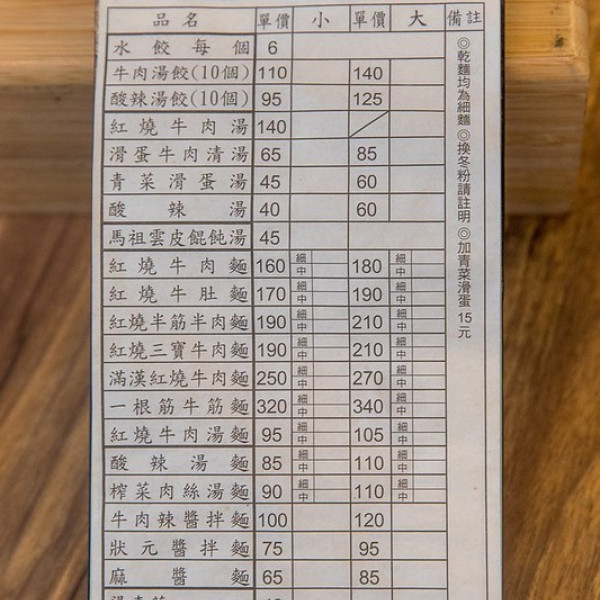 品名 單價 小 單價 大 備註
水餃每個 6
牛肉湯餃(10個) 110 140
酸辣湯餃(10個) 95 125
紅燒牛肉湯 140
滑蛋牛肉清湯 65 85
青菜滑蛋湯 45 60
酸辣湯 40 60
馬祖雲皮餛飩湯 45
紅燒牛肉麵 160 細 中 180 細 中
紅燒牛肚麵 170 細 中 190 細 中
紅燒半筋半肉麵 190 細 中 210 細 中
紅燒三寶牛肉麵 190 細 中 210 細 中
滿漢紅燒牛肉麵 250 細 中 270 細 中
一根筋牛筋麵 320 細 中 340 細 中
紅燒牛肉湯麵 95 細 中 105 細 中
酸辣湯麵 85 細 中 110 細 中
榨菜肉絲湯麵 90 細 中 110 細 中
牛肉辣醬拌麵 100 120
狀元醬拌麵 75 95
麻醬麵 65 85
◎乾麵均為細麵◎換冬粉請註明◎加青菜滑蛋15元